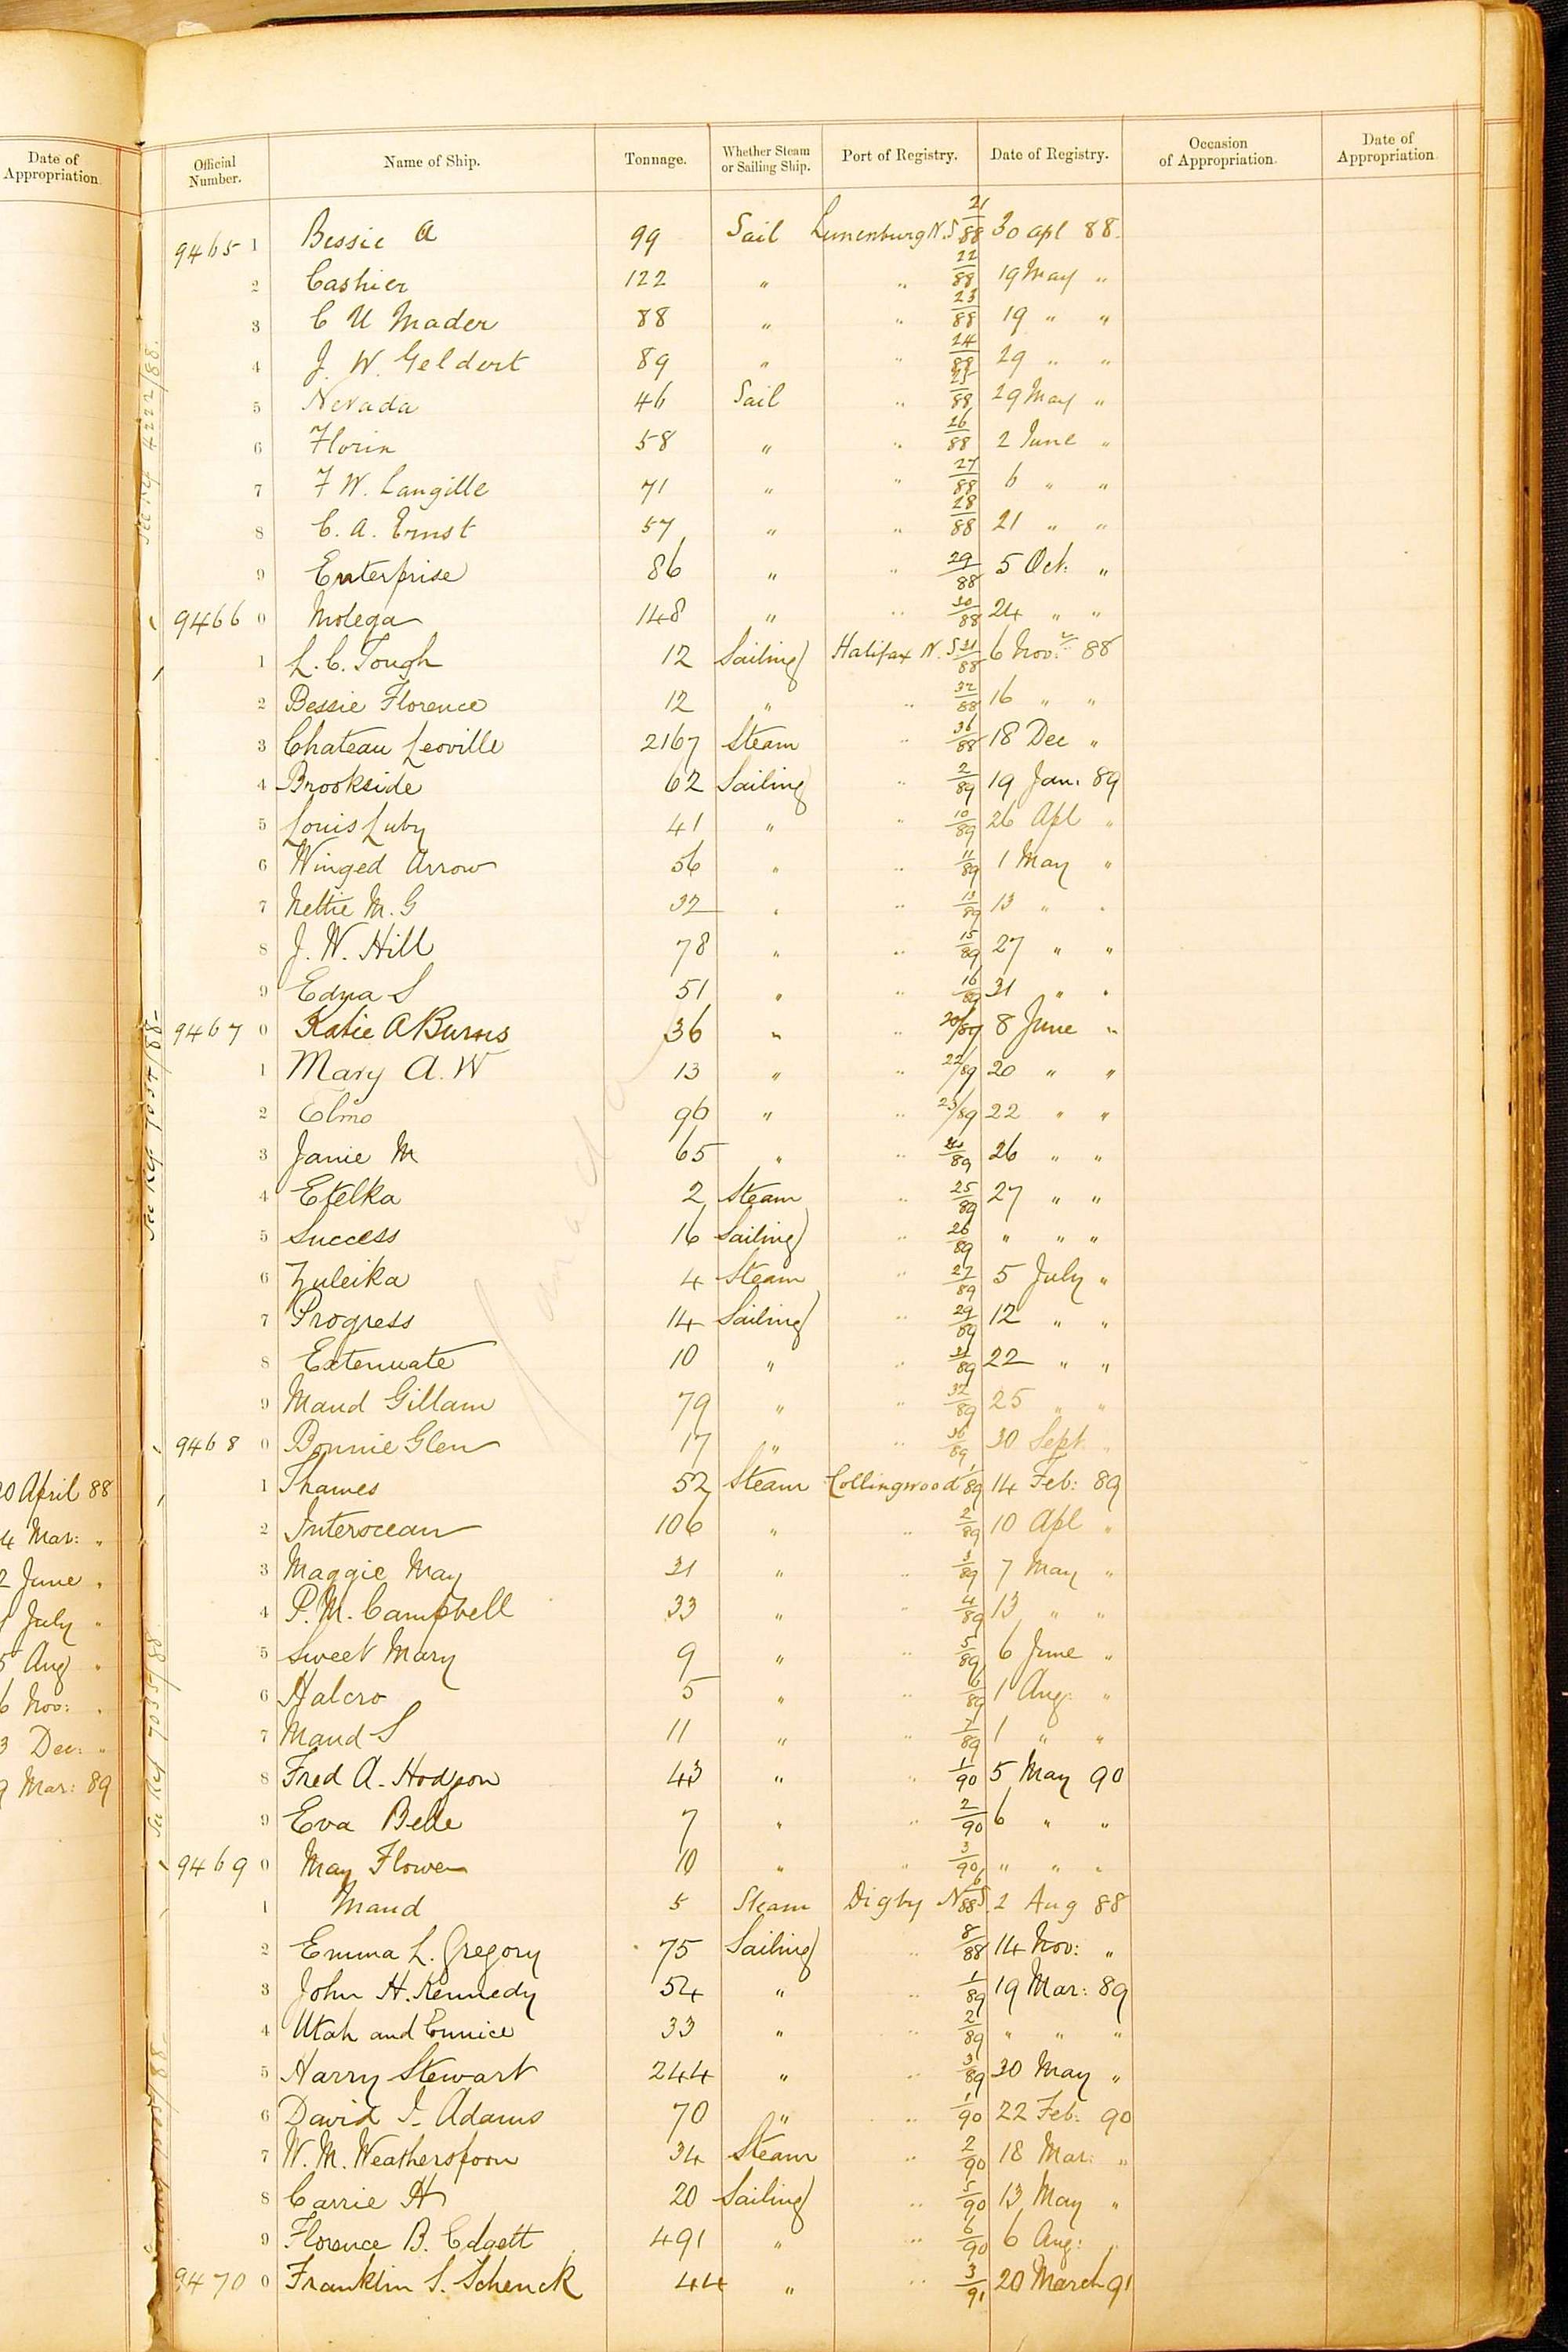 Date of Appropriation.
Official Number. Name of Ship. Tonnage. Whether Steam or Sailing Ship. Port of Registry. Date of Registry. Occasion of Appropriation. Date of Appropriation.
9465 1 Bessie A 99 Sail Lunenburg N.S 21/88 30 Apl 88.
2 Cashier 122 " " 22/88 19 May "
3 C U Mader 88 " " 23/88 19 " "
4 J. W. Geldert 89 " " 24/88 29 " "
5 Nevada 46 Sail " 25/88 29 May "
6 Florin 58 " " 26/88 2 June "
7 F W. Langille 71 " " 27/88 6 " "
8 C. A. Ernst 57 " " 28/88 21 " "
9 Enterprise 86 " " 29/88 5 Oct: "
9466 0 Molega 148 " " 30/88 24 " "
1 L. C. Tough 12 Sailing Halifax N. S 31/88 6 Nov: 88
2 Bessie Florence 12 " " 32/88 16 " "
3 Chateau Leoville 2167 Steam " 36/88 18 Dec "
4 Brookside 62 Sailing " 2/89 19 Jan: 89
5 Louis Luby 41 " " 10/89 26 Apl "
6 Winged Arrow 56 " " 11/89 1 May "
7 Nettie M. G 32 " " 13/89 13 " "
8 J. W. Hill 78 " " 15/89 27 " "
9 Edna S 51 " " 16/89 31 " "
9467 0 Katie A Burns 36 " " 20/89 8 June "
1 Mary A. W 13 " " 22/89 20 " "
2 Elmo 96 " " 23/89 22 " "
3 Janie M 65 " " 24/89 26 " "
4 Etelka 2 Steam " 25/89 27 " "
5 Success 16 Sailing " 26/89 " " "
6 Zuleika 4 Steam " 27/89 5 July "
7 Progress 14 Sailing " 29/89 12 " "
8 Extenuate 10 " " 31/89 22 " "
9 Maud Gillam 79 " " 32/89 25 " "
9468 0 Bonnie Glen 17 " " 36/89 30 Sept "
1 Thames 52 Steam Collingwood 1/89 14 Feb: 89
2 Interocean 106 " " 2/89 10 Apl "
3 Maggie May 31 " " 3/89 7 May "
4 P. M. Campbell 33 " " 4/89 13 " "
5 Sweet Mary 9 " " 5/89 6 June "
6 Halcro 5 " " 6/89 1 Aug: "
7 Maud S 11 " " 7/89 1 " "
8 Fred A. Hodgson 43 " " 1/90 5 May 90
9 Eva Belle 7 " " 2/90 6 " "
9469 0 May Flower 10 " " 3/90 " " "
1 Maud 5 Steam Digby N.S. 6/88 2 Aug 88
2 Emma L. Gregory 75 Sailing " 8/88 14 Nov: "
3 John H. Kennedy 54 " " 1/89 19 Mar: 89
4 Utah and Eunice 33 " " 2/89 " " "
5 Harry Stewart 244 " " 3/89 30 May "
6 David J. Adams 70 " " 1/90 22 Feb: 90
7 W. M. Weatherspoon 34 Steam " 2/90 18 Mar: "
8 Carrie H 20 Sailing " 5/90 13 May "
9 Florence B. Edgett 491 " " 6/90 6 Aug: "
9470 0 Franklin S. Schenck 44 " " 3/91 20 March 91
0 April 88
4 Mar: "
2 June "
July "
5 Aug "
6 Nov: "
3 Dec: "
9 Mar: 89
See Reg 4222/88.